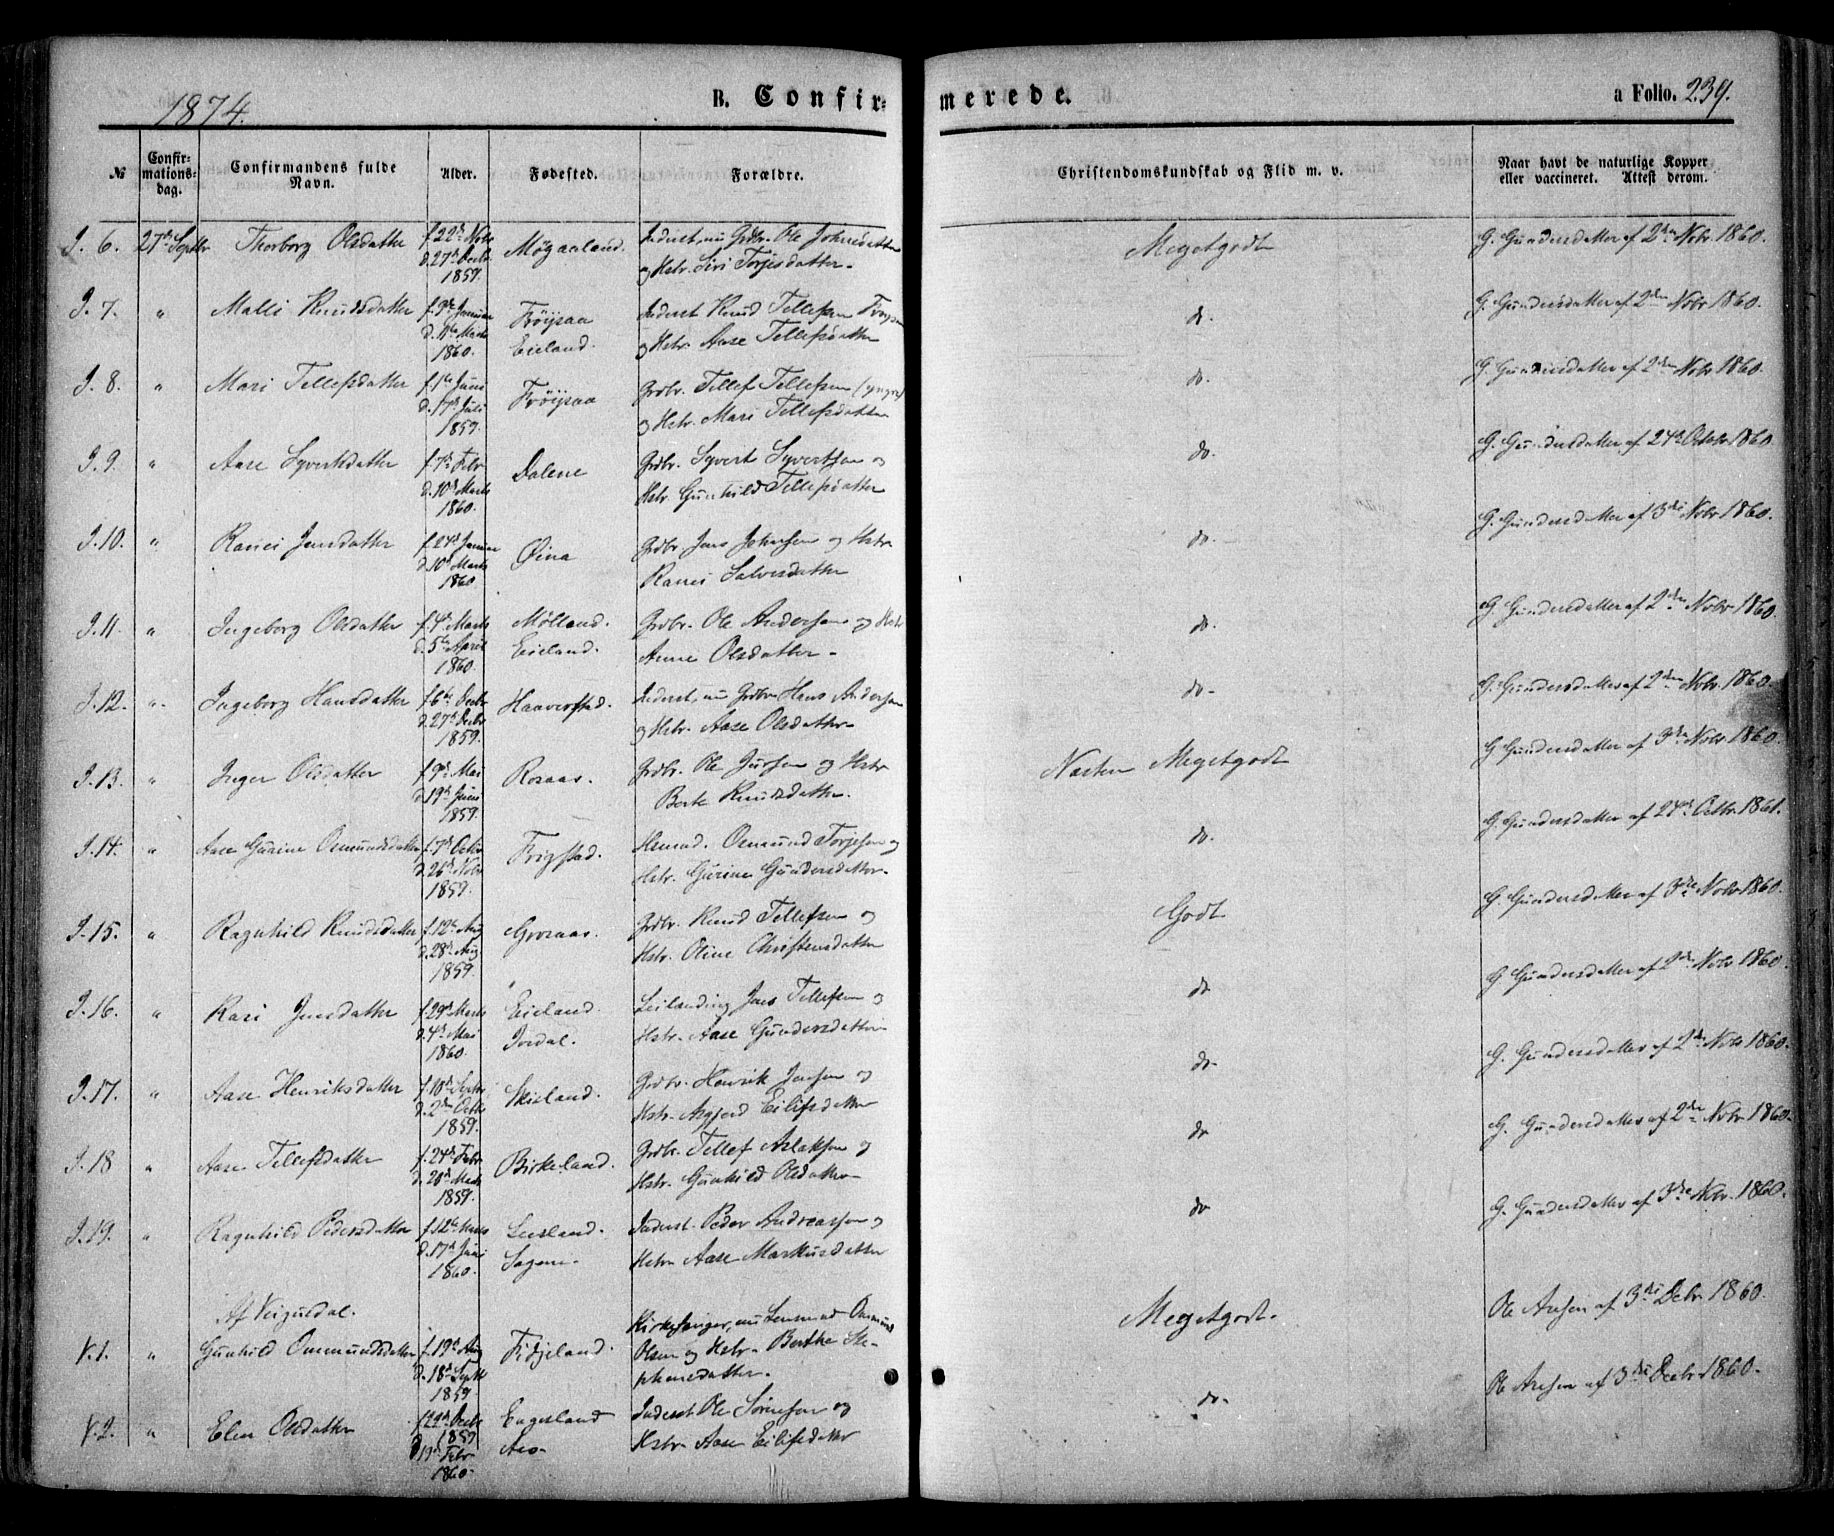 1874.
B. Confirmerede.
a Folio. 239.
№
Confirmationsdag.
Confirmandens fulde Navn.
Alder.
Fødested.
Forældre.
Christendomskundskab og Flid m. v.
Naar havt de naturlige Kopper eller vaccineret. Attest derom.
J. 6. 27de Septbr Thorborg Olsdatter f. 22de Novbr Møgaaland. Inderst, nu Grdbr. Ole Johnsen
d. 27de Decbr og Hstr. Siri Torjesdatter.
1859.
Megetgodt
G. Gundersdatter af 2den Nvbr. 1860.
J. 7. " Malli Knudsdatter f. 9de Januar Frøysaa Inderst Knud Tellefsen Frøysaa
d. Marts Eieland. og Hstr. Aase Tellefsdatter
1860.
do.
G. Gundersdatter af 2den Novbr 1860.
J. 8. " Mari Tellefsdatter f. 1ste Juni Frøysaa Grdbr. Tellef Tellefsen (yngre)
d. 17de Juli og Hstr. Mari Tellefsdatter
1859.
do.
G. Gundersdatter af 2den Novbr 1860.
J. 9. " Aase Syvertsdatter f. 7de Febr Dalene Grdbr. Syvert Syvertsen og
d. 10de Marts Hstr. Gunhild Tellefsdatter
1860.
do.
G. Gundersdatter af 24de Octobr 1860.
J. 10. " Ranei Jensdatter f. 24de Januar Øina Grdbr Jens Johnsen og Hstr
d. 10de Marts Ranei Salvesdatter
1860
do.
G. Gundersdatter af 3die Novbr 1860.
J. 11. " Ingeborg Olsdatter f. 4de Marts Mølland. Grdbr. Ole Andersen og Hstr
d. 5te April Eieland. Anne Olsdatter.
1860.
do.
G. Gundersdatter af 2den Novbr 1860.
J. 12. " Ingeborg Hansdatter f. 6te Decbr Haaverstad. Inderst, nu Grdbr Hans Andersen
d. 27de Decbr og Hstr. Aase Olsdatter
1859.
do.
G. Gundersdatter af 2den Novbr. 1860.
J. 13. " Inger Olsdatter f. 9de Mai Rosaas. Grdbr. Ole Jensen og Hstr
d. 19de Juni Berte Knudsdatter.
1859.
Næsten Megetgodt
G Gundersdatter af 3die Novbr 1860.
J. 14. " Aase Gurine Osmundsdatter f. 7de Octbr Frigstad. Hemad. Osmund Torjesen og
d. 26de Novbr Hstr. Gurine Gundersdatter.
1859.
do.
G. Gundersdatter af 24de Octbr. 1861.
J. 15. " Ragnhild Knudsdatter f. 12te Aug Grosaas. Grdbr. Knud Tellefsen og
d. 28de Aug Hstr. Oline Christensdatter
1859.
Godt
G. Gundersdatter af 3die Novbr 1860.
J. 16. " Kari Jensdatter f. 29de Marts Eieland. Leilænding Jens Tellefsen og
d. 4de Mai Ivedal. Hstr. Aase Gundersdatter
1860.
do
G Gundersdatter af 2den Novbr 1860.
J. 17. " Aase Henriksdatter f. 10de Septbr Skieland. Grdbr. Henrik Jensen og
d. 2den Octbr Hstr. Asgjerd Eilifsdatter
1859.
do.
G. Gundersdatter af 2den Novbr 1860.
J. 18 " Aase Tellefsdatter f. 24de Febr Birkeland. Grdbr. Tellef Aslaksen og
d. 20de Marts Hstr. Gunhild Olsdatter
1859.
do
G. Gundersdatter af 2den Novbr 1860.
J. 19. " Ragnhild Pedersdatter f. 12te Marts Leesland. Inderst. Peder Andreassen og
d. 17de Juni Sagene. Hstr Aase Markusdatter
1860.
do
G. Gundersdatter af 3die Novbr. 1860.
Af Veigusdal.
V. 1. " Gunhild Ommundsdatter f. 19de Aug Fidjeland. Kirkesanger, nu Lensmand Ommund
d. 18de Septb Olsen og Hstr. Berthe Stephensdatter.
1859
Megetgodt.
Ole Aasen af 3die Debr. 1860.
V. 2. " Elen Olsdatter f. 29de Decbr 1859 Engesland Inderst Ole Sørensen og
d. 19de Febr 1860. Aas. Hstr. Aase Eilifsdatter
do.
Ole Aasen af 3die Decbr 1860.